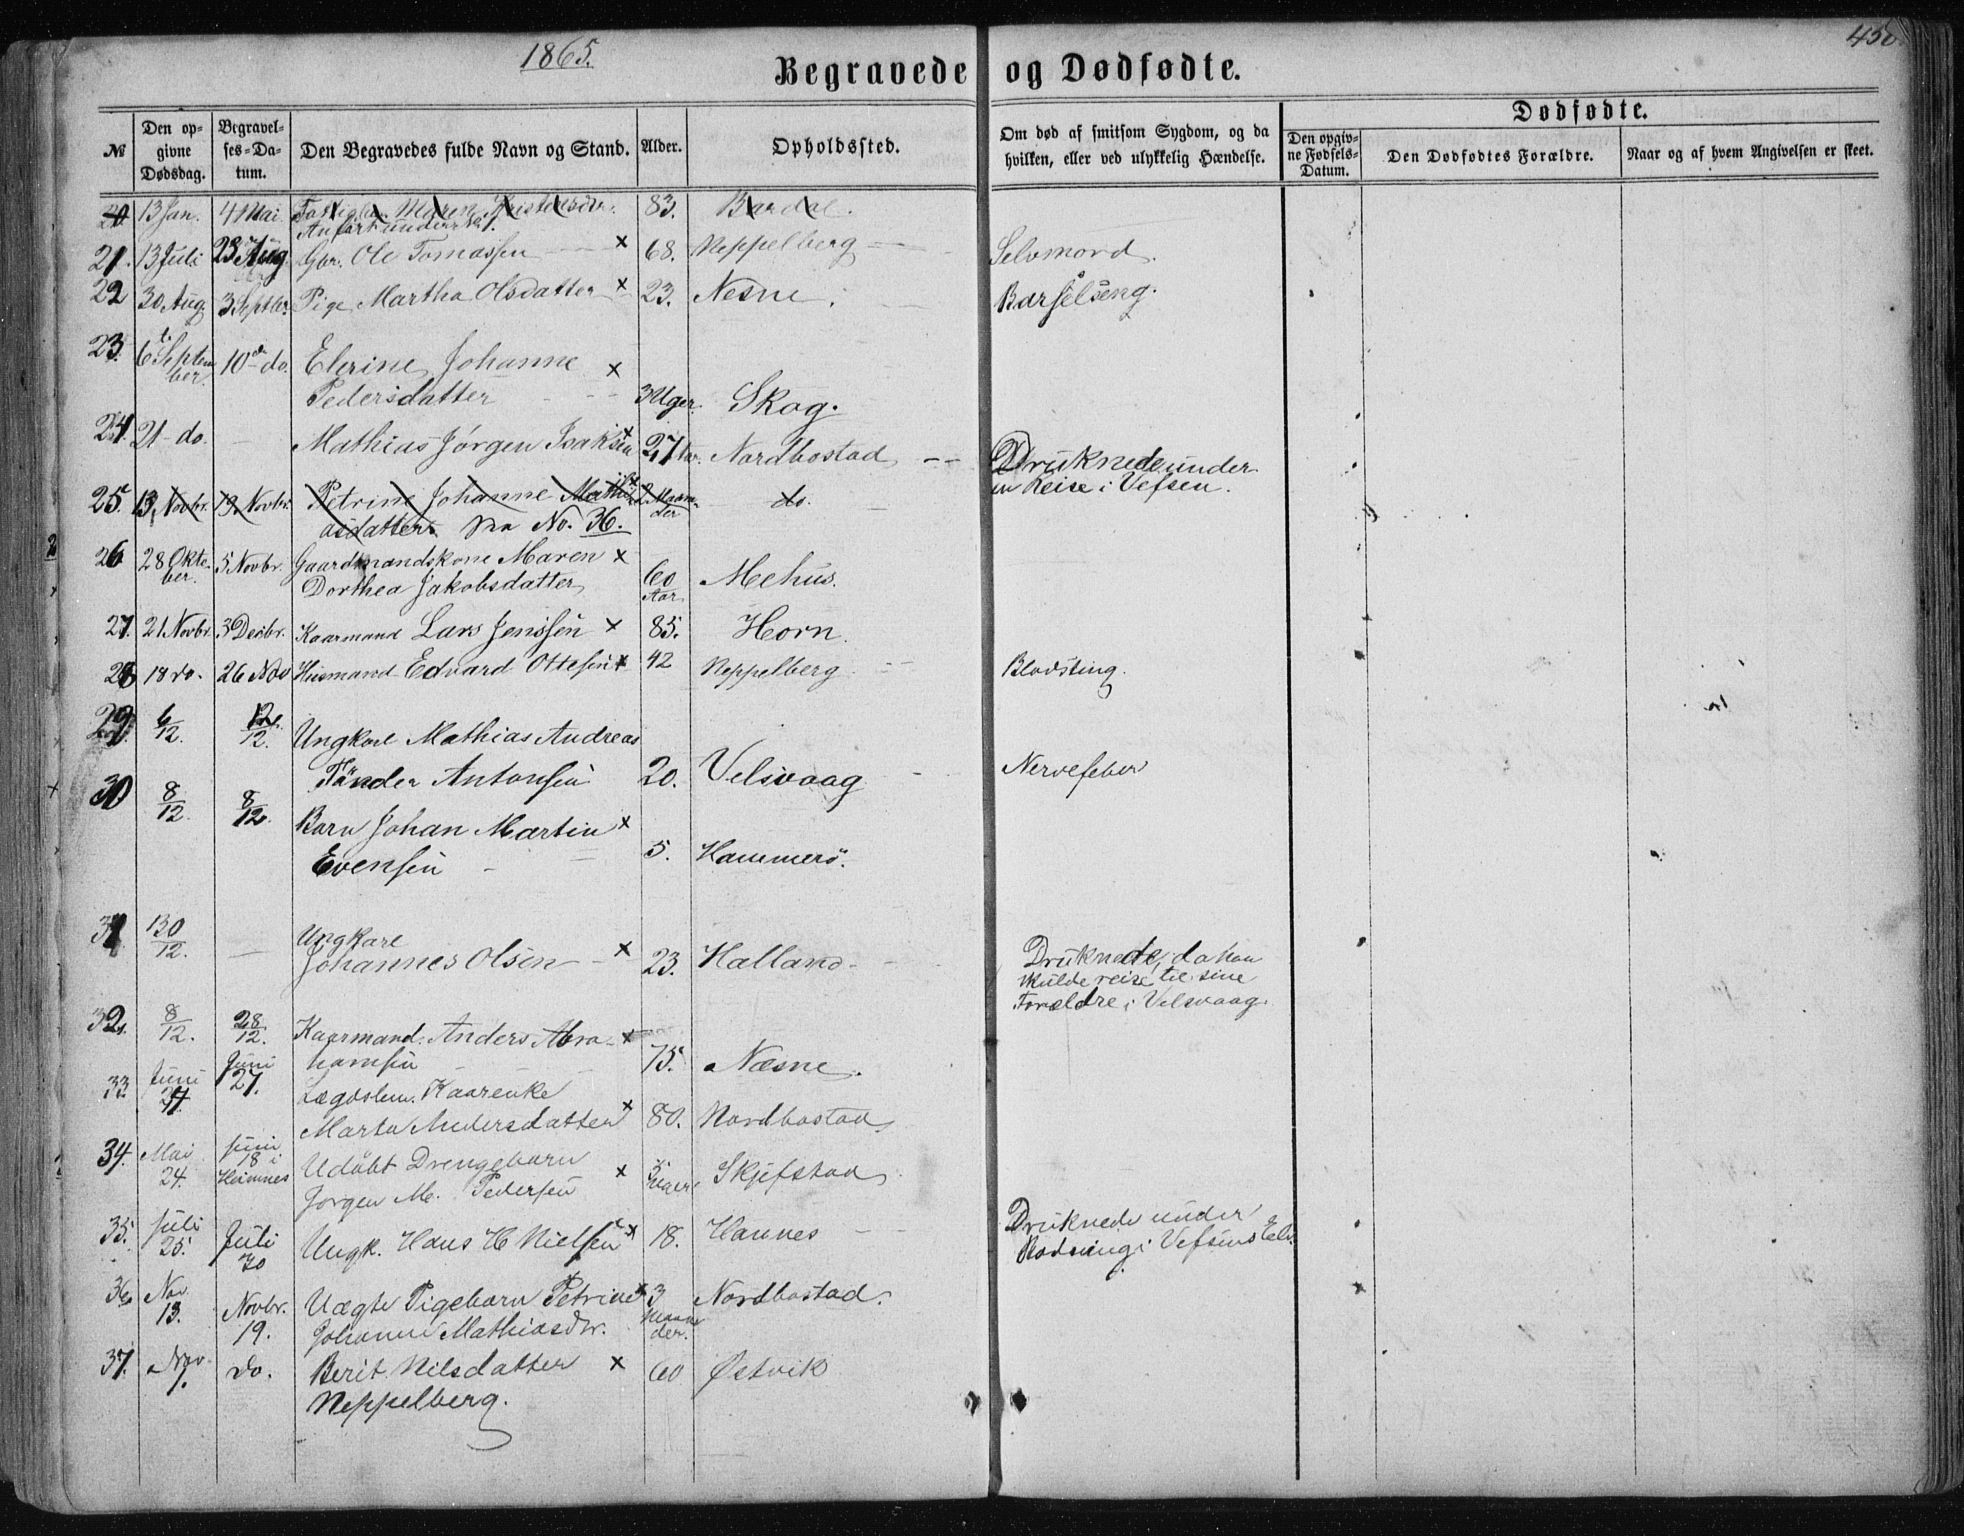 1865.
450
Begravede og Dødfødte.
№
Den opgivne Dødsdag.
Begravelses-Datum.
Den Begravedes fulde Navn og Stand.
Alder.
Opholdssted.
Om død af smitsom Sygdom, og da hvilken, eller ved ulykkelig Hændelse.
Dødfødte.
Den opgivne Fødsels-Datum.
Den Dødfødtes Forældre.
Naar og af hvem Angivelsen er skeet.
20 13 Jan. 4 Mai Maren 83. Bardal.
Anført under
21. 13 Juli 23 Aug Gbr. Ole Tomassen x 68. Neppelberg Selvmord.
22 30 Aug. 3 Septbr. Pige Martha Olsdatter x 23. Nesne. Barselseng.
23. 6te September. 10de do. Elerine Johanne x
Pedersdatter 3 Uger. Skog.
24. 21 do. Mathias Jørgen Isaksen x 27 Aar. Nordbostad Druknede under
en Reise i Vefsen.
25. 13 Novbr. 19. Novbr. Petrine Johanne Mathi- Maaneder do.
asdatter No. 36.
26 28 Oktober. 5 Novbr. Gaardmandskone Maren x
Dorthea Jakobsdatter 60 Aar Mehus.
27. 21 Novbr. 3 Decbr. Kaarmand Lars Jenssen x 85. Horn.
28 18 do. 26 Nov Husmand Edvard Ottesen x 42 Neppelberg Blodsting.
29. 6/12. 12/12. Ungkarl Mathias Andreas
Tönder Antonsen 20. Velsvaag Nervefeber
30 8/12 8/12. Barn Johan Martin x
Evensen 5. Hammerö.
31 30/12. Ungkarl
Johannes Olsen x 23. Halland Druknede, da han
skulde reise til sine
Forældre i Velsvaag.
32. 8/12. 28/12. Kaarmand Anders Abra- x
hamsen 75. Næsne.
33. Juni 21. Juni 27. Lægdslem. Kaarenke
Marta Andersdatter x 80. Nordbostad
34. Mai 24. Juni 18 i Hemnes Udöbt Drengebarn
Jørgen M. Pedersen x Uger Skjefstad
35. Juli 25. Juli 30 Ungk. Hans H Nielsen x 18. Hannes Druknede under
Flodning i Vefsens Elv.
36. Nov. 13. Novbr. 19. Uægte Pigebarn Petrine x 3 Maaneder. Nordbostad.
Johanne Mathiasdtr.
37. Nov. 7. do. Berit Nilsdatter x 60 Østvik
Neppelberg.